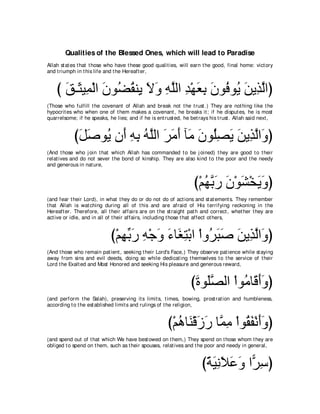 Qualities of the Blessed Ones, which will lead to Paradise
Allah states that those who have these good qualities, will earn the good, final home: victory
and triumph in this life and the Hereafter,
﴿الَّذِينَ يُوفُونَ بِعَهْدِ اللَّهِ وَلاَ يَنقُضُونَ الْمِيثَـقَ ﴾
(Those who fulfill the covenant of Allah and break not the trust.) They are nothing like the
hypocrites who when one of them makes a covenant, he breaks it; if he disputes, he is most
quarrelsome; if he speaks, he lies; and if he is entrusted, he betrays his trust. Allah said next,
﴿وَالَّذِينَ يَصِلُونَ مَآ أَمَرَ اللَّهُ بِهِ أَن يُوصَلَ﴾
(And those who join that which Allah has commanded to be joined) they are good to their
relatives and do not sever the bond of kinship. They are also kind to the poor and the needy
and generous in nature,
﴿وَيَخْشَوْنَ رَبَّهُمْ﴾
(and fear their Lord), in what they do or do not do of actions and statements. They remember
that Allah is watching during all of this and are afraid of His terrifying reckoning in the
Hereafter. Therefore, all their affairs are on the straight path and correct, whether they are
active or idle, and in all of their affairs, including those that affect others,
﴿وَالَّذِينَ صَبَرُواْ ابْتِغَاءَ وَجْهِ رَبِّهِمْ﴾
(And those who remain patient, seeking their Lord's Face,) They observe patience while staying
away from sins and evil deeds, doing so while dedicating themselves to the service of their
Lord the Exalted and Most Honored and seeking His pleasure and generous reward,
﴿وَأَقَامُواْ الصَّلَوةَ﴾
(and perform the Salah), preserving its limits, times, bowing, prostration and humbleness,
according to the established limits and rulings of the religion,
﴿وَأَنْفَقُواْ مِمَّا رَزَقْنَاهُمْ﴾
(and spend out of that which We have bestowed on them,) They spend on those whom they are
obliged to spend on them, such as their spouses, relatives and the poor and needy in general,
﴿سِرّاً وَعَلاَنِيَةً﴾